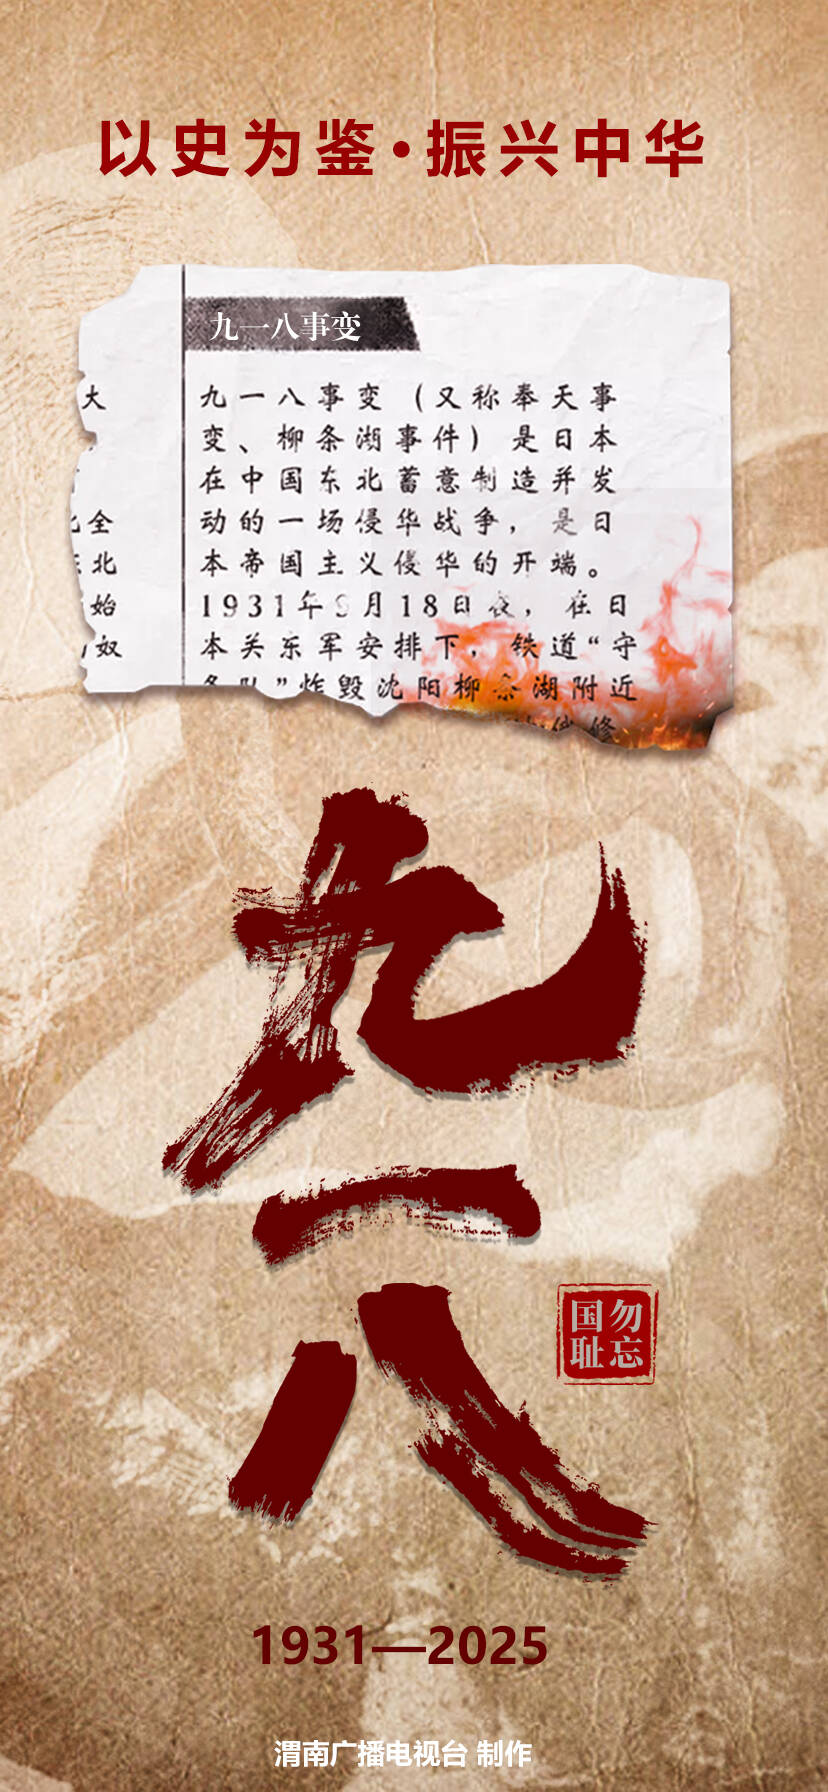 以史为鉴·振兴中华
九一八事变
大
全
北
始
奴
九一八事变（又称奉天事
变、柳条湖事件）是日本
在中国东北蓄意制造并发
动的一场侵华战争，是日
本帝国主义侵华的开端。
1931年9月18日夜，在日
本关东军安排下，铁道“守
备队”炸毁沈阳柳条湖附近
修
九一八
勿忘
国耻
1931—2025
渭南广播电视台 制作